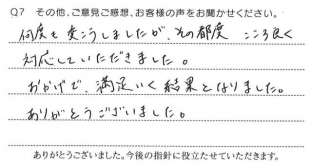 Q7 その他、ご意見ご感想、お客様の声をお聞かせください。
何度も変こうしましたが、その都度 こころ良く
対応していただきました。
おかげで、満足いく結果となりました。
ありがとうございました。
ありがとうございました。今後の指針に役立たせていただきます。